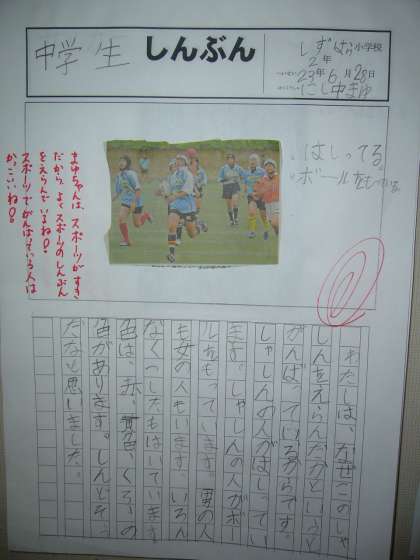 中学生
しんぶん
しずはら小学校
2年
23年6月28日
にし中まゆ
はしってる。
ボールをもってる。
まゆちゃんは、スポーツがすき
だから、よくスポーツのしんぶん
をえらんでいるね!
スポーツでがんばっている人は
かっこいいね!
わたしは、なぜこのしゃ
しんをえらんだかというと
がんばっているからです。
しゃしんの人がはしってい
ます。しゃしんの人がボー
ルをもっています。男の人
も女の人もいます。いろん
なくつしたをはいています。
色は、赤、青色、くろ、の
色があります。しんどそう
だなと思いました。